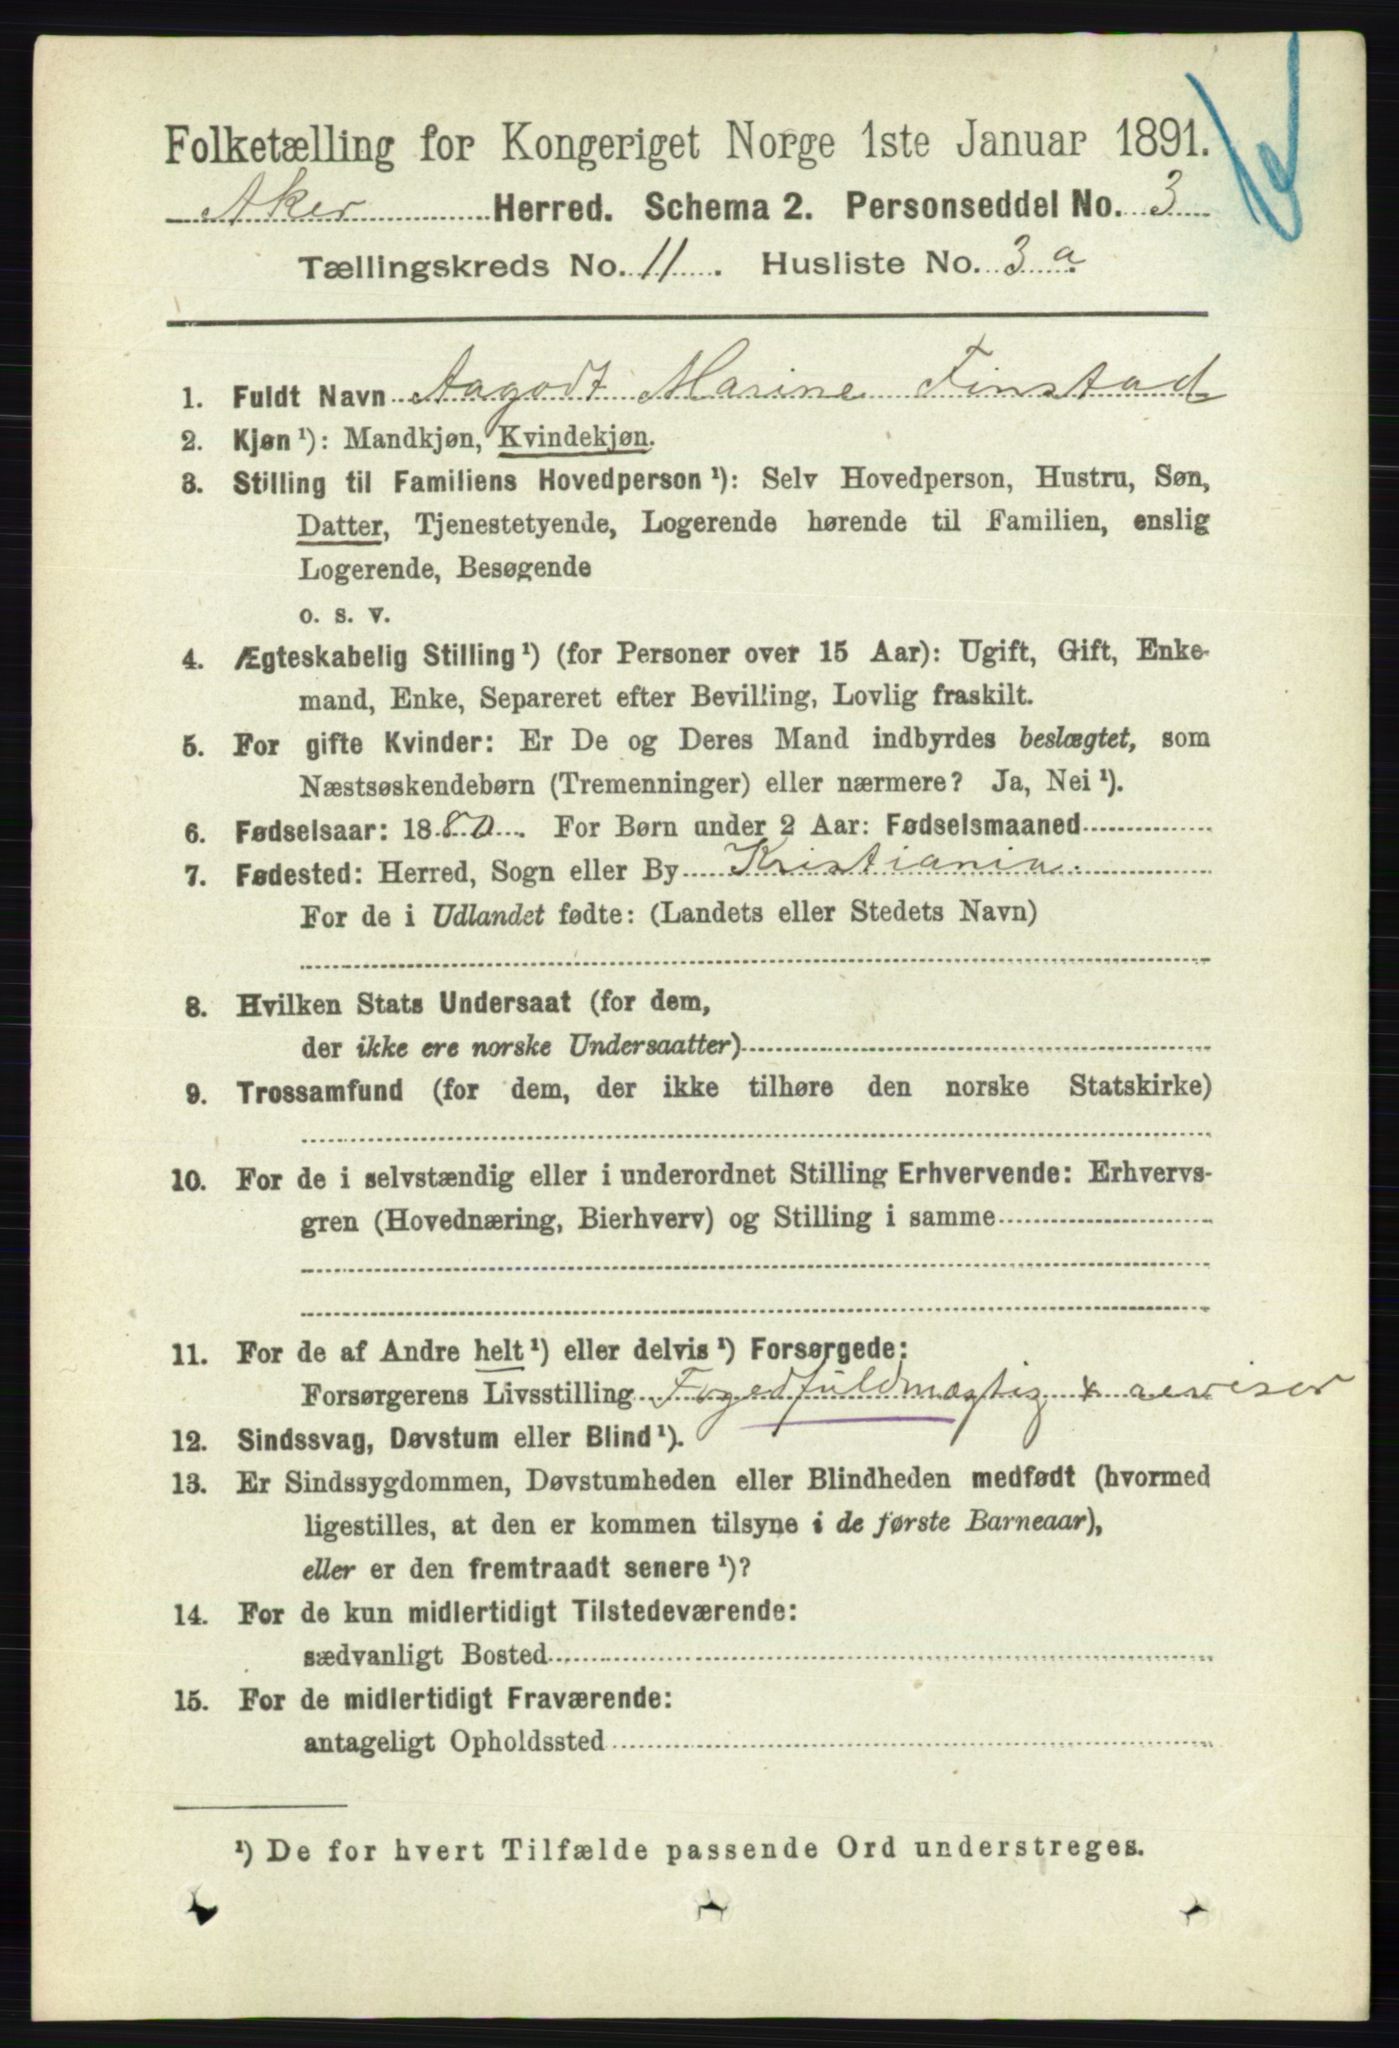 Folketælling for Kongeriget Norge 1ste Januar 1891.
Aker Herred. Schema 2. Personseddel No. 3
Tællingskreds No. 11. Husliste No. 3 a
1. Fuldt Navn Aagodt Marine Finstad
2. Kjøn ¹): Mandkjøn, Kvindekjøn.
3. Stilling til Familiens Hovedperson ¹): Selv Hovedperson, Hustru, Søn,
Datter, Tjenestetyende, Logerende hørende til Familien, enslig
Logerende, Besøgende
o. s. v.
4. Ægteskabelig Stilling ¹) (for Personer over 15 Aar): Ugift, Gift, Enke-
mand, Enke, Separeret efter Bevilling, Lovlig fraskilt.
5. For gifte Kvinder: Er De og Deres Mand indbyrdes beslægtet, som
Næstsøskendebørn (Tremenninger) eller nærmere? Ja, Nei ¹).
6. Fødselsaar: 1880. For Børn under 2 Aar: Fødselsmaaned
7. Fødested: Herred, Sogn eller By Kristiania.
For de i Udlandet fødte: (Landets eller Stedets Navn)
8. Hvilken Stats Undersaat (for dem,
der ikke ere norske Undersaatter)
9. Trossamfund (for dem, der ikke tilhøre den norske Statskirke)
10. For de i selvstændig eller i underordnet Stilling Erhvervende: Erhvervs-
gren (Hovednæring, Bierhverv) og Stilling i samme
11. For de af Andre helt ¹) eller delvis ¹) Forsørgede:
Forsørgerens Livsstilling Fogedfuldmægtig & revisor
12. Sindssvag, Døvstum eller Blind ¹).
13. Er Sindssygdommen, Døvstumheden eller Blindheden medfødt (hvormed
ligestilles, at den er kommen tilsyne i de første Barneaar),
eller er den fremtraadt senere ¹)?
14. For de kun midlertidigt Tilstedeværende:
sædvanligt Bosted
15. For de midlertidigt Fraværende:
antageligt Opholdssted
¹) De for hvert Tilfælde passende Ord understreges.